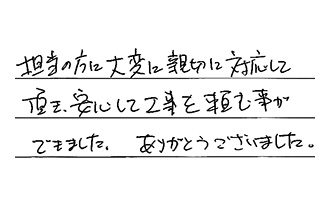 担当の方に大変に親切に対応して
頂き、安心して工事を頼む事が
できました。ありがとうございました。